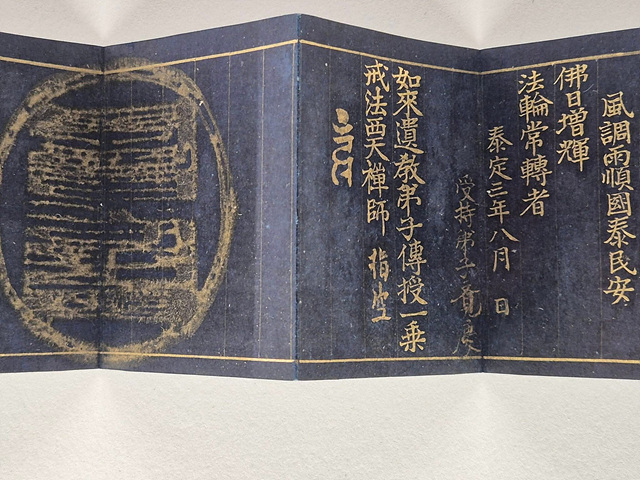 風調雨順國泰民安
佛日增輝
法輪常轉者
泰定三年八月 日
受持弟子覺慶
如來遺教弟子傳授一乘
戒法西天禪師 指空